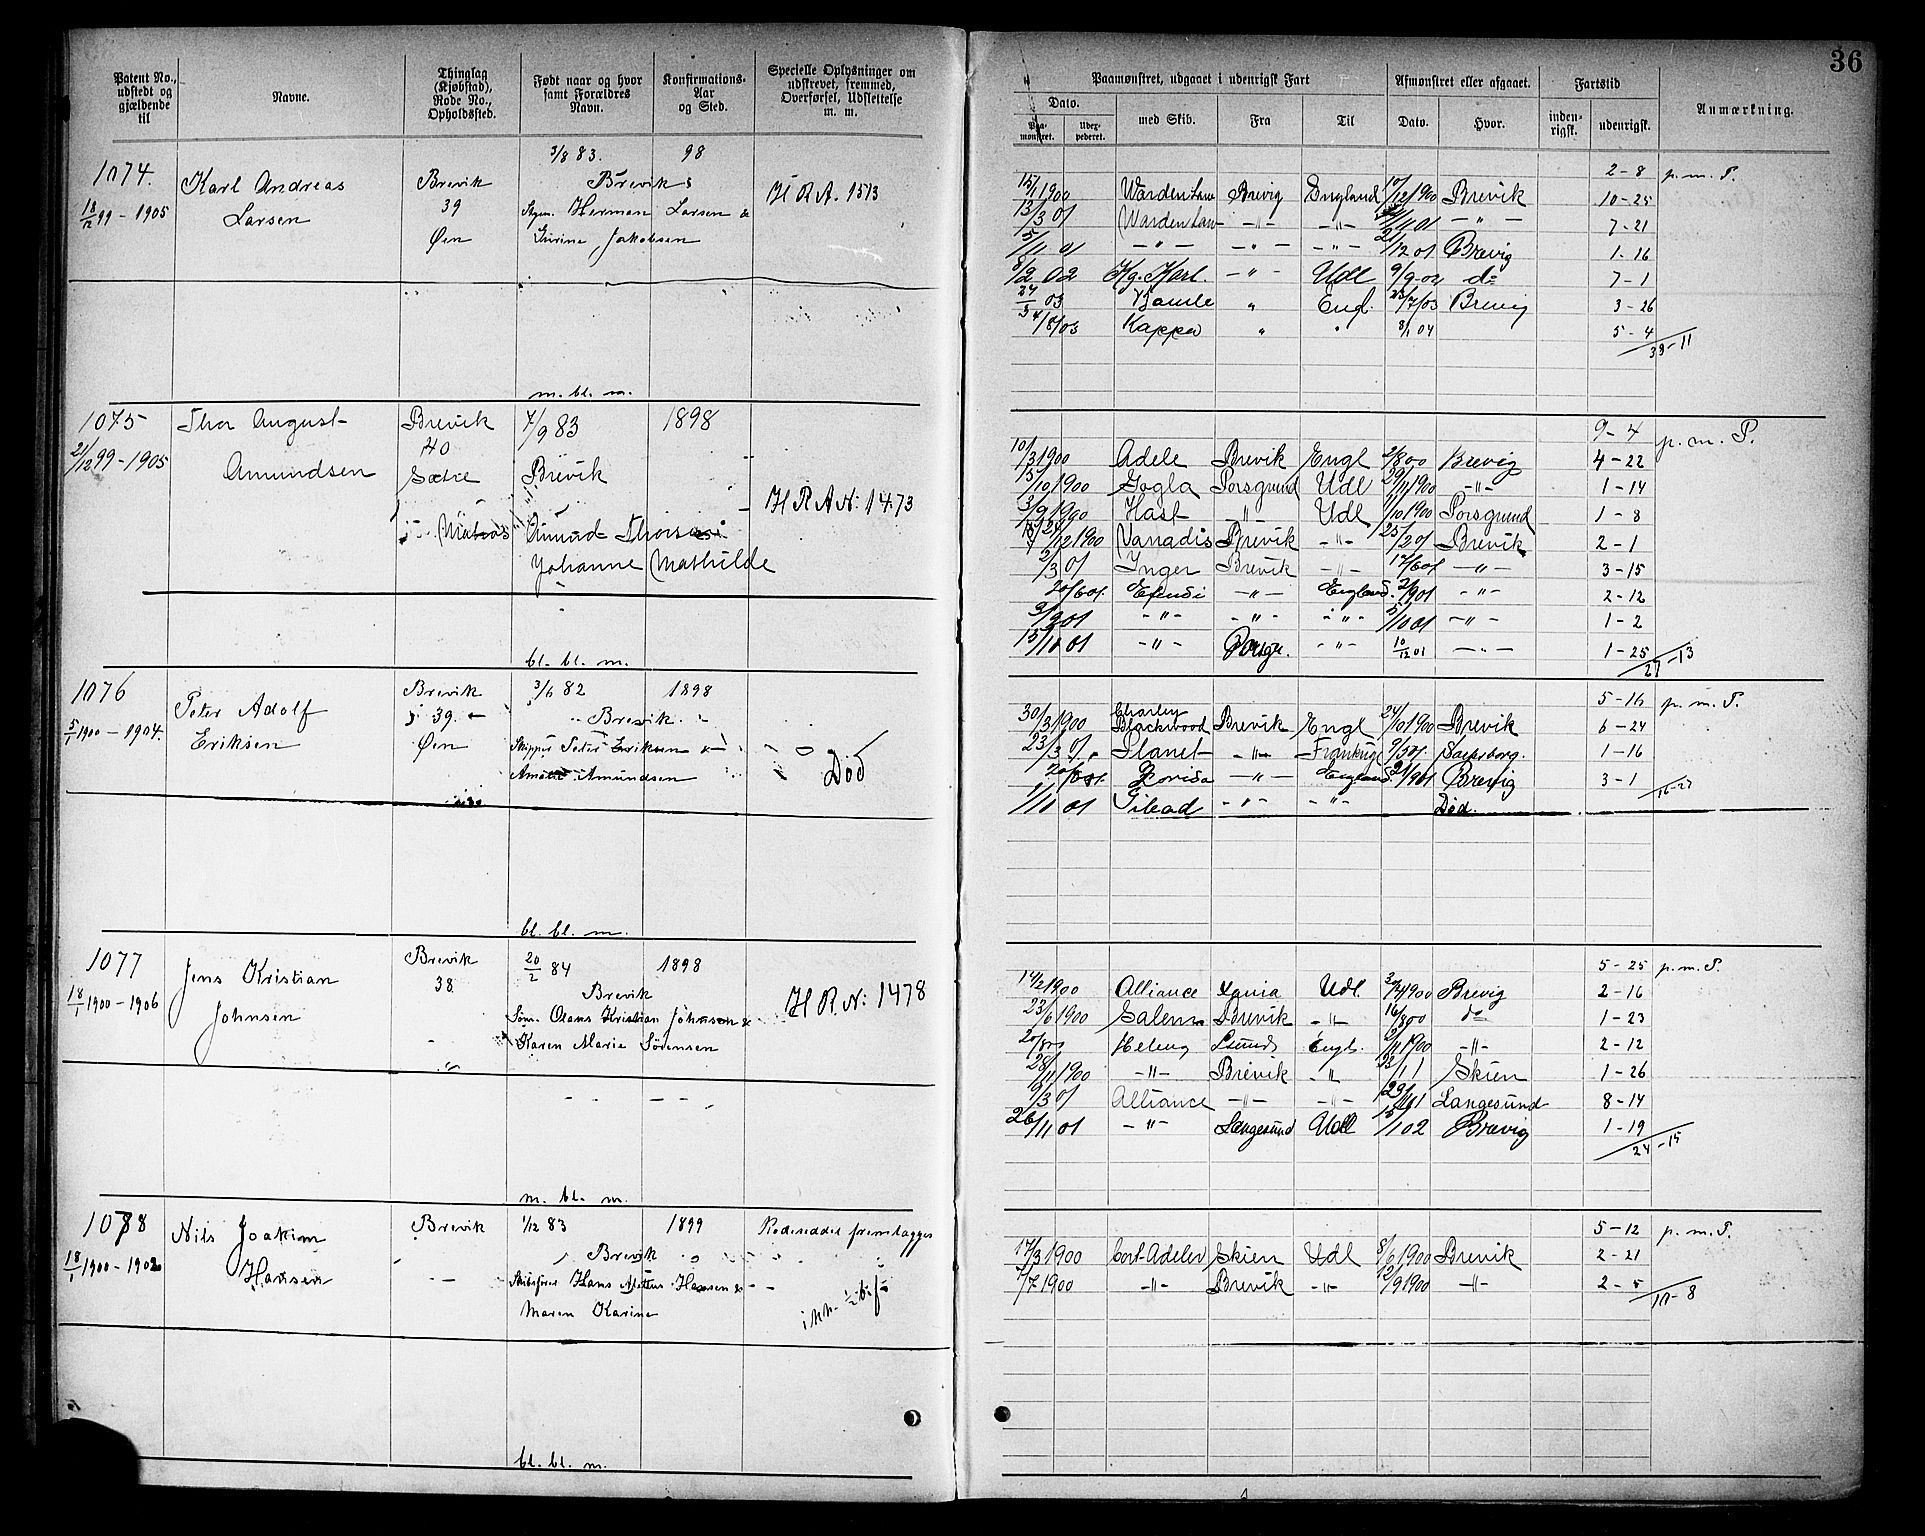 36
Patent No., udstedt og gjældende til
Navne.
Thinglag (Kjøbstad), Rode No., Opholdssted.
Født naar og hvor samt Forældres Navn.
Konfirmations-Aar og Sted.
Specielle Oplysninger om udskrevet, fremmed, Overførsel, Udslettelse m. m.
Paamønstret, udgaaet i udenrigsk Fart
Afmønstret eller afgaaet.
Fartstid
Anmærkning.
Dato. med Skib. Fra Til Dato. Hvor. indenrigsk. udenrigsk.
Paamønstret.
1074.
18/12 99 - 1905
Karl Andreas
Larsen
Brevik
39
Øen
3/8 83. 98
Brevik
Herman Larsen &
Gurine Jakobsen
H R A. 1513
m. bl. m.
2 - 8 p. m. P.
1900 Brevig England 10/12 1900 Brevik 10 - 25
13/3 01 Warden Law -"- -"- 01 -"- 7 - 21
5/11 01 -"- -"- -"- 21/12 01 Brevig 1 - 16
8/2 02 Kg. Karl. -"- Udl 9/9-02 do 7 - 1
27/3 03 Bamle " Engl. 23/7/03 Brevig 3 - 26
4/8/03 Kappa " " 8/1 04 5 - 4
39 - 11
1075
21/12 99 - 1905
Thor August
Amundsen
Brevik
40
Sætre
7/9 83 1898
Brevik
Amund Thorsen
Johanne Mathilde
H R A N: 1473
bl. bl. m.
9 - 4 p. m. P.
10/3 1900 Adele Brevik Engl 2/8 00 Brevig 4 - 22
15/10 1900 Gogla Porsgrund Udl 29/11 1900 -"- 1 - 14
3/9 1900 Hast -"- Udl 1/10 1900 Porsgrund 1 - 8
12 1900 Vanadis Brevik -"- 25/2 01 Brevik 2 - 1
2/3 01 Inger Brevik -"- 17/6 01 -"- 3 - 15
20/6 01. -"- England. 2/9 01 -"- 2 - 12
3/9 01 -"- -"- -"- 5/10 01 -"- 1 - 2
15/10 01 -"- Porsgr. -"- 10/12 01 -"- 1 - 25
27 - 13
1076
5/1 1900 - 1904.
Peter Adolf
Eriksen
Brevik
39.
Øen
3/6 82 1898
Brevik.
Skipper Peter Eriksen
Amundsen
Død
bl. bl. m.
5 - 16 p. m. P.
30/3 1900 Charley Blackwood Brevik Engl 24/10 1900 Brevik 6 - 24
23/3 01. Planet -"- Frankrig 9/5 01. Sarpsborg. 1 - 16
-"- England. Brevig 3 - 1
16 - 27
1/10 01 Gilead -"- -"- Død.
1077
18/1 1900 - 1906
Jens Kristian
Johnsen
Brevik
38
20/2 84 1898
Brevik
Søm. Olaus Kristian Johnsen &
Karen Marie Sørensen
H R N: 1478
m. bl. m.
5 - 25 p. m. P.
14/2 1900 Alliance Udl. 1900 Brevig 2 - 16
23/6 1900 Salem Brevik -"- 16/8 00 do 1 - 23
20/8 00 Engl. 1900 -"- 2 - 12
28/11 1900 -"- Brevik -"- Skien 1 - 26
9/3 01 Alliance -"- -"- Langesund 8 - 14
26/11 01 -"- Langesund Udl 15/1 02 Brevig 1 - 19
24 - 15
1078
18/1 1900 - 1902
Nils Joakim
Hansen
Brevik
1/12 83 1899
Brevik
Hans Hansen &
Maren Karine
Rodeseddel fremlagges
bl. bl. m.
5 - 12 p. m. P.
17/3 1900 Cort Adeler Skien Udl 8/6 1900 Brevik 2 - 21
7/7 1900 -"- Brevik -"- 12/9 1900 -"- 2 - 5
10 - 8